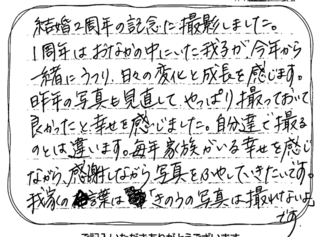 結婚2周年の記念に撮影しました。
1周年はおなかの中にいた我子が、今年から
一緒にうつり、日々の変化と成長を感じます。
昨年の写真も見直して、やっぱり撮っておいて
良かったと幸せを感じました。自分達で撮る
のとは違います。毎年家族がいる幸せを感じ
ながら、感謝しながら写真をふやしていきたいです。
我家の言葉は「きのうの写真は撮れないよ」
です
ご記入いただきありがとうございます